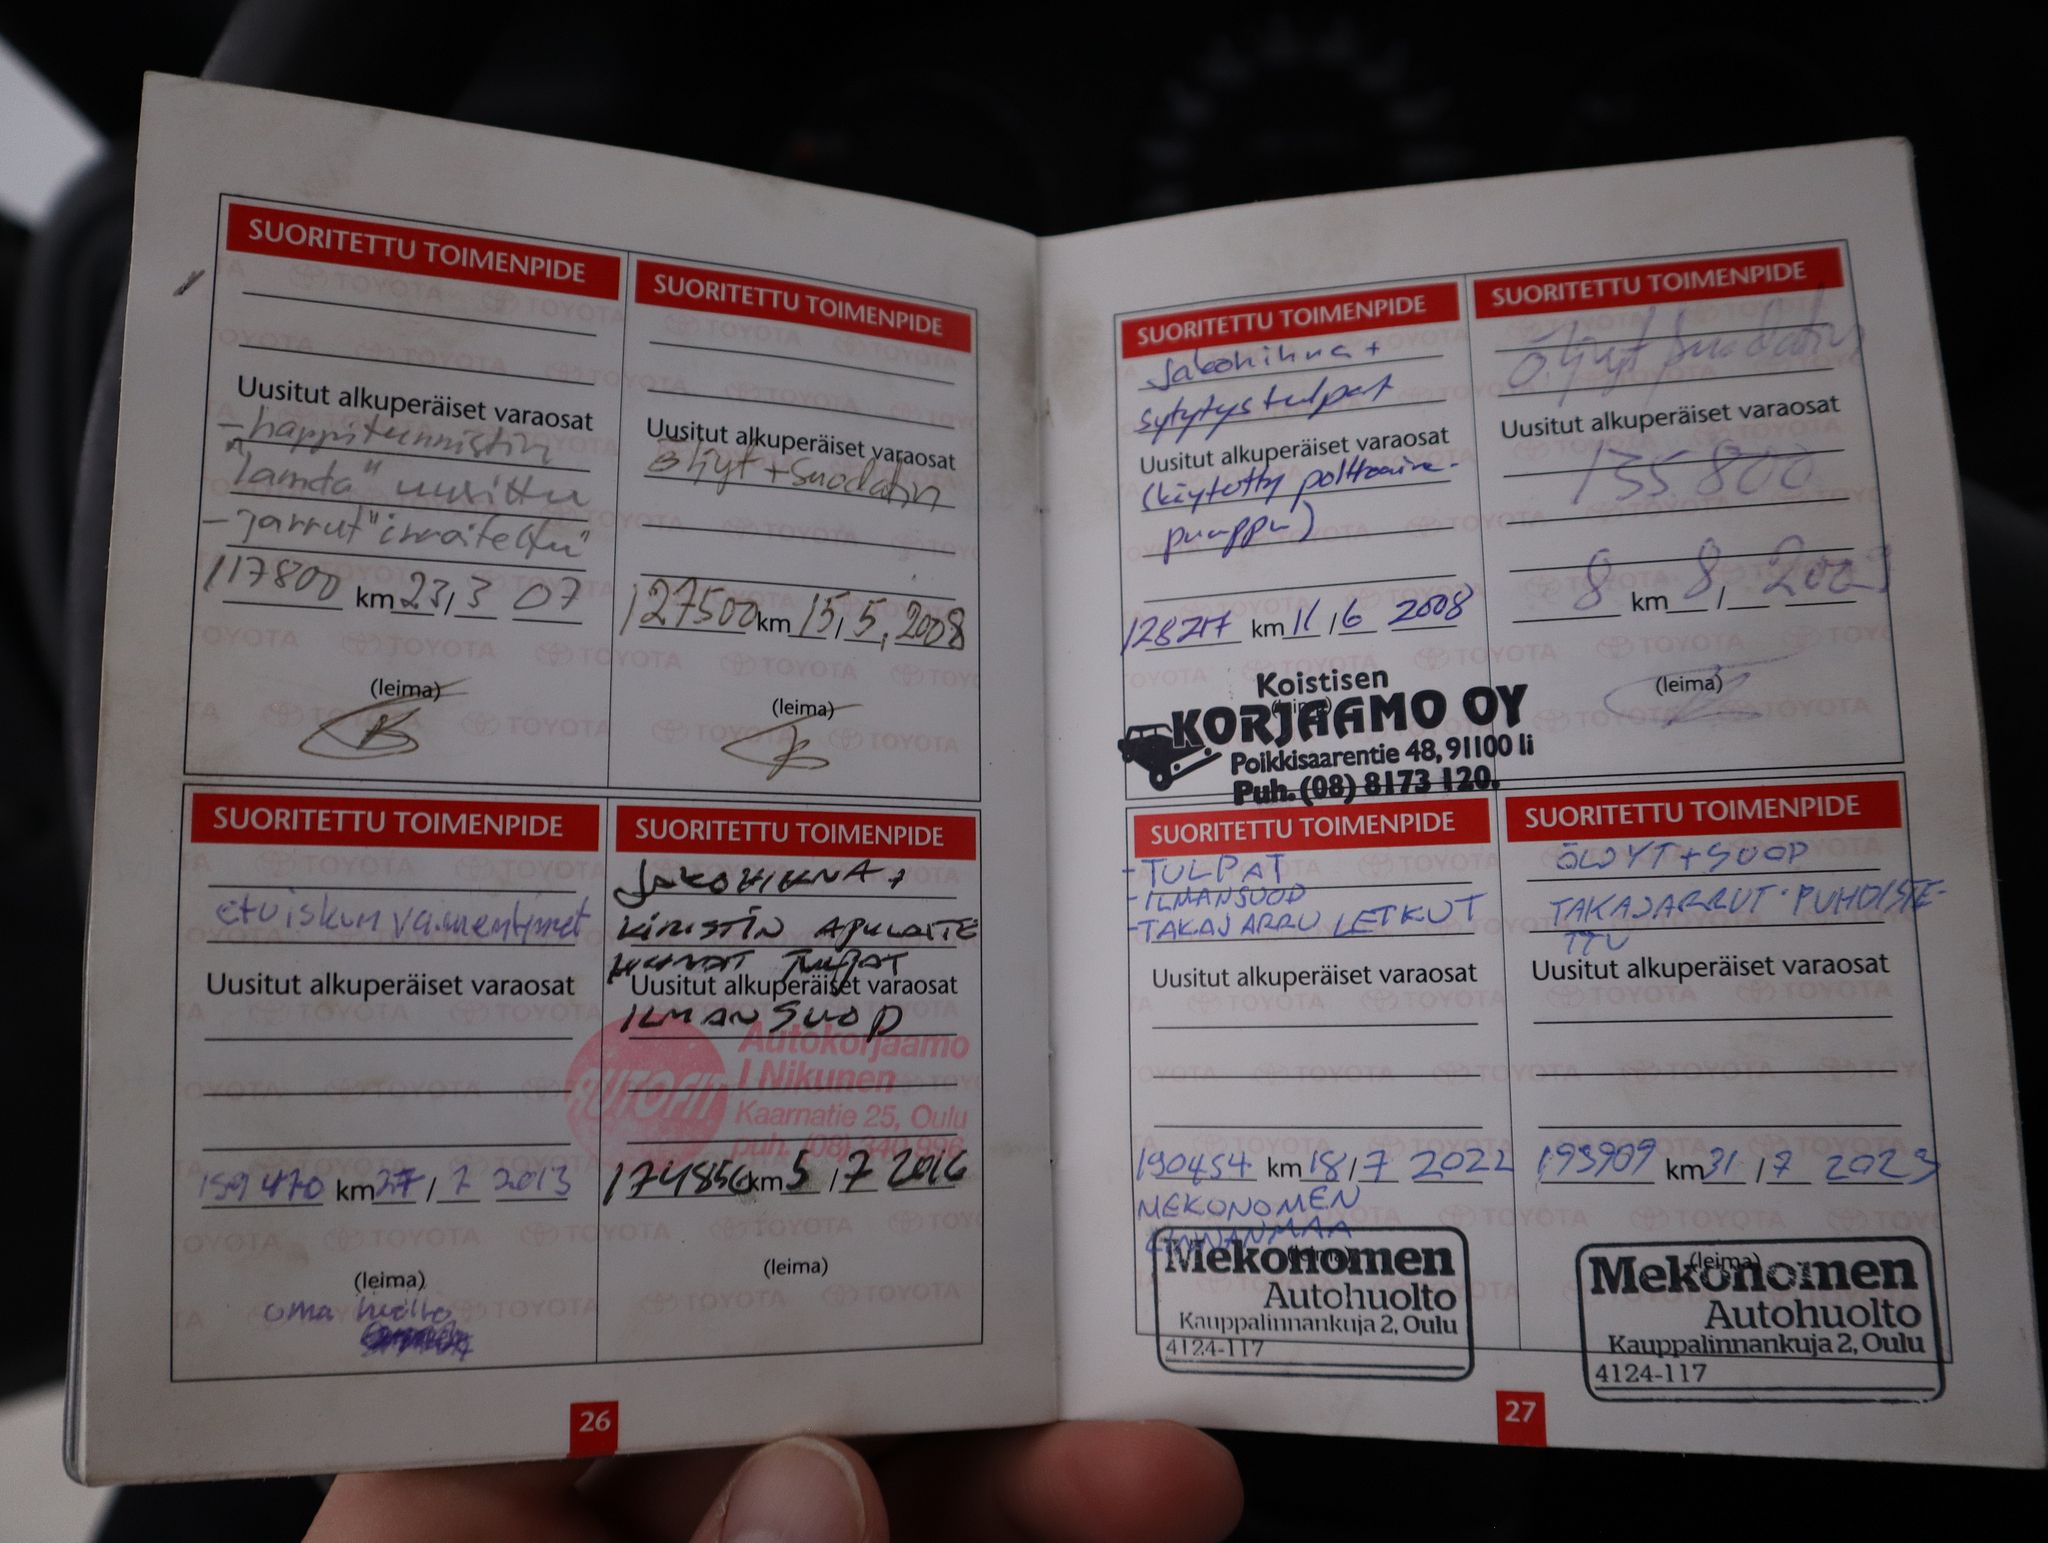 SUORITETTU TOIMENPIDE
Uusitut alkuperäiset varaosat
- happitunnistin
"lamda" uusittu
- jarrut
117800 km 23/3 07
(leima)
SUORITETTU TOIMENPIDE
Uusitut alkuperäiset varaosat
öljyt + suodatin
127500 km 15/5, 2008
(leima)
SUORITETTU TOIMENPIDE
etuiskunvaimentimet
Uusitut alkuperäiset varaosat
159470 km 27/7 2013
(leima)
oma huolto
SUORITETTU TOIMENPIDE
JAKOHIHNA +
KIRISTIN APULAITE
HIHNAT TULPAT
Uusitut alkuperäiset varaosat
ILMANSUOD
AUTOFIT
Autokorjaamo
I Nikunen
Kaarnatie 25, Oulu
puh. (08) 340 996
174856 km 5/7 2016
(leima)
26
SUORITETTU TOIMENPIDE
Jakohihna +
sytytystulpat
Uusitut alkuperäiset varaosat
(käytetty polttoaine-
pumppu)
128217 km 11/6 2008
Koistisen
KORJAAMO OY
Poikkisaarentie 48, 91100 Ii
Puh. (08) 8173 120.
SUORITETTU TOIMENPIDE
Öljyt/suodatin
Uusitut alkuperäiset varaosat
135800
8 km 8/ 2009
(leima)
SUORITETTU TOIMENPIDE
- TULPAT
- ILMANSUOD
- TAKAJARRU LETKUT
Uusitut alkuperäiset varaosat
190454 km 18/7 2022
MEKONOMEN
LINNANMAA
Mekonomen
Autohuolto
Kauppalinnankuja 2, Oulu
4124-117
SUORITETTU TOIMENPIDE
ÖLJYT + SUOD
TAKAJARRUT PUHDISTE-
TTU
Uusitut alkuperäiset varaosat
193909 km 31/7 2023
(leima)
Mekonomen
Autohuolto
Kauppalinnankuja 2, Oulu
4124-117
27